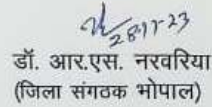 28-11-23
डॉ. आर.एस. नरवरिया
(जिला संगठक भोपाल)